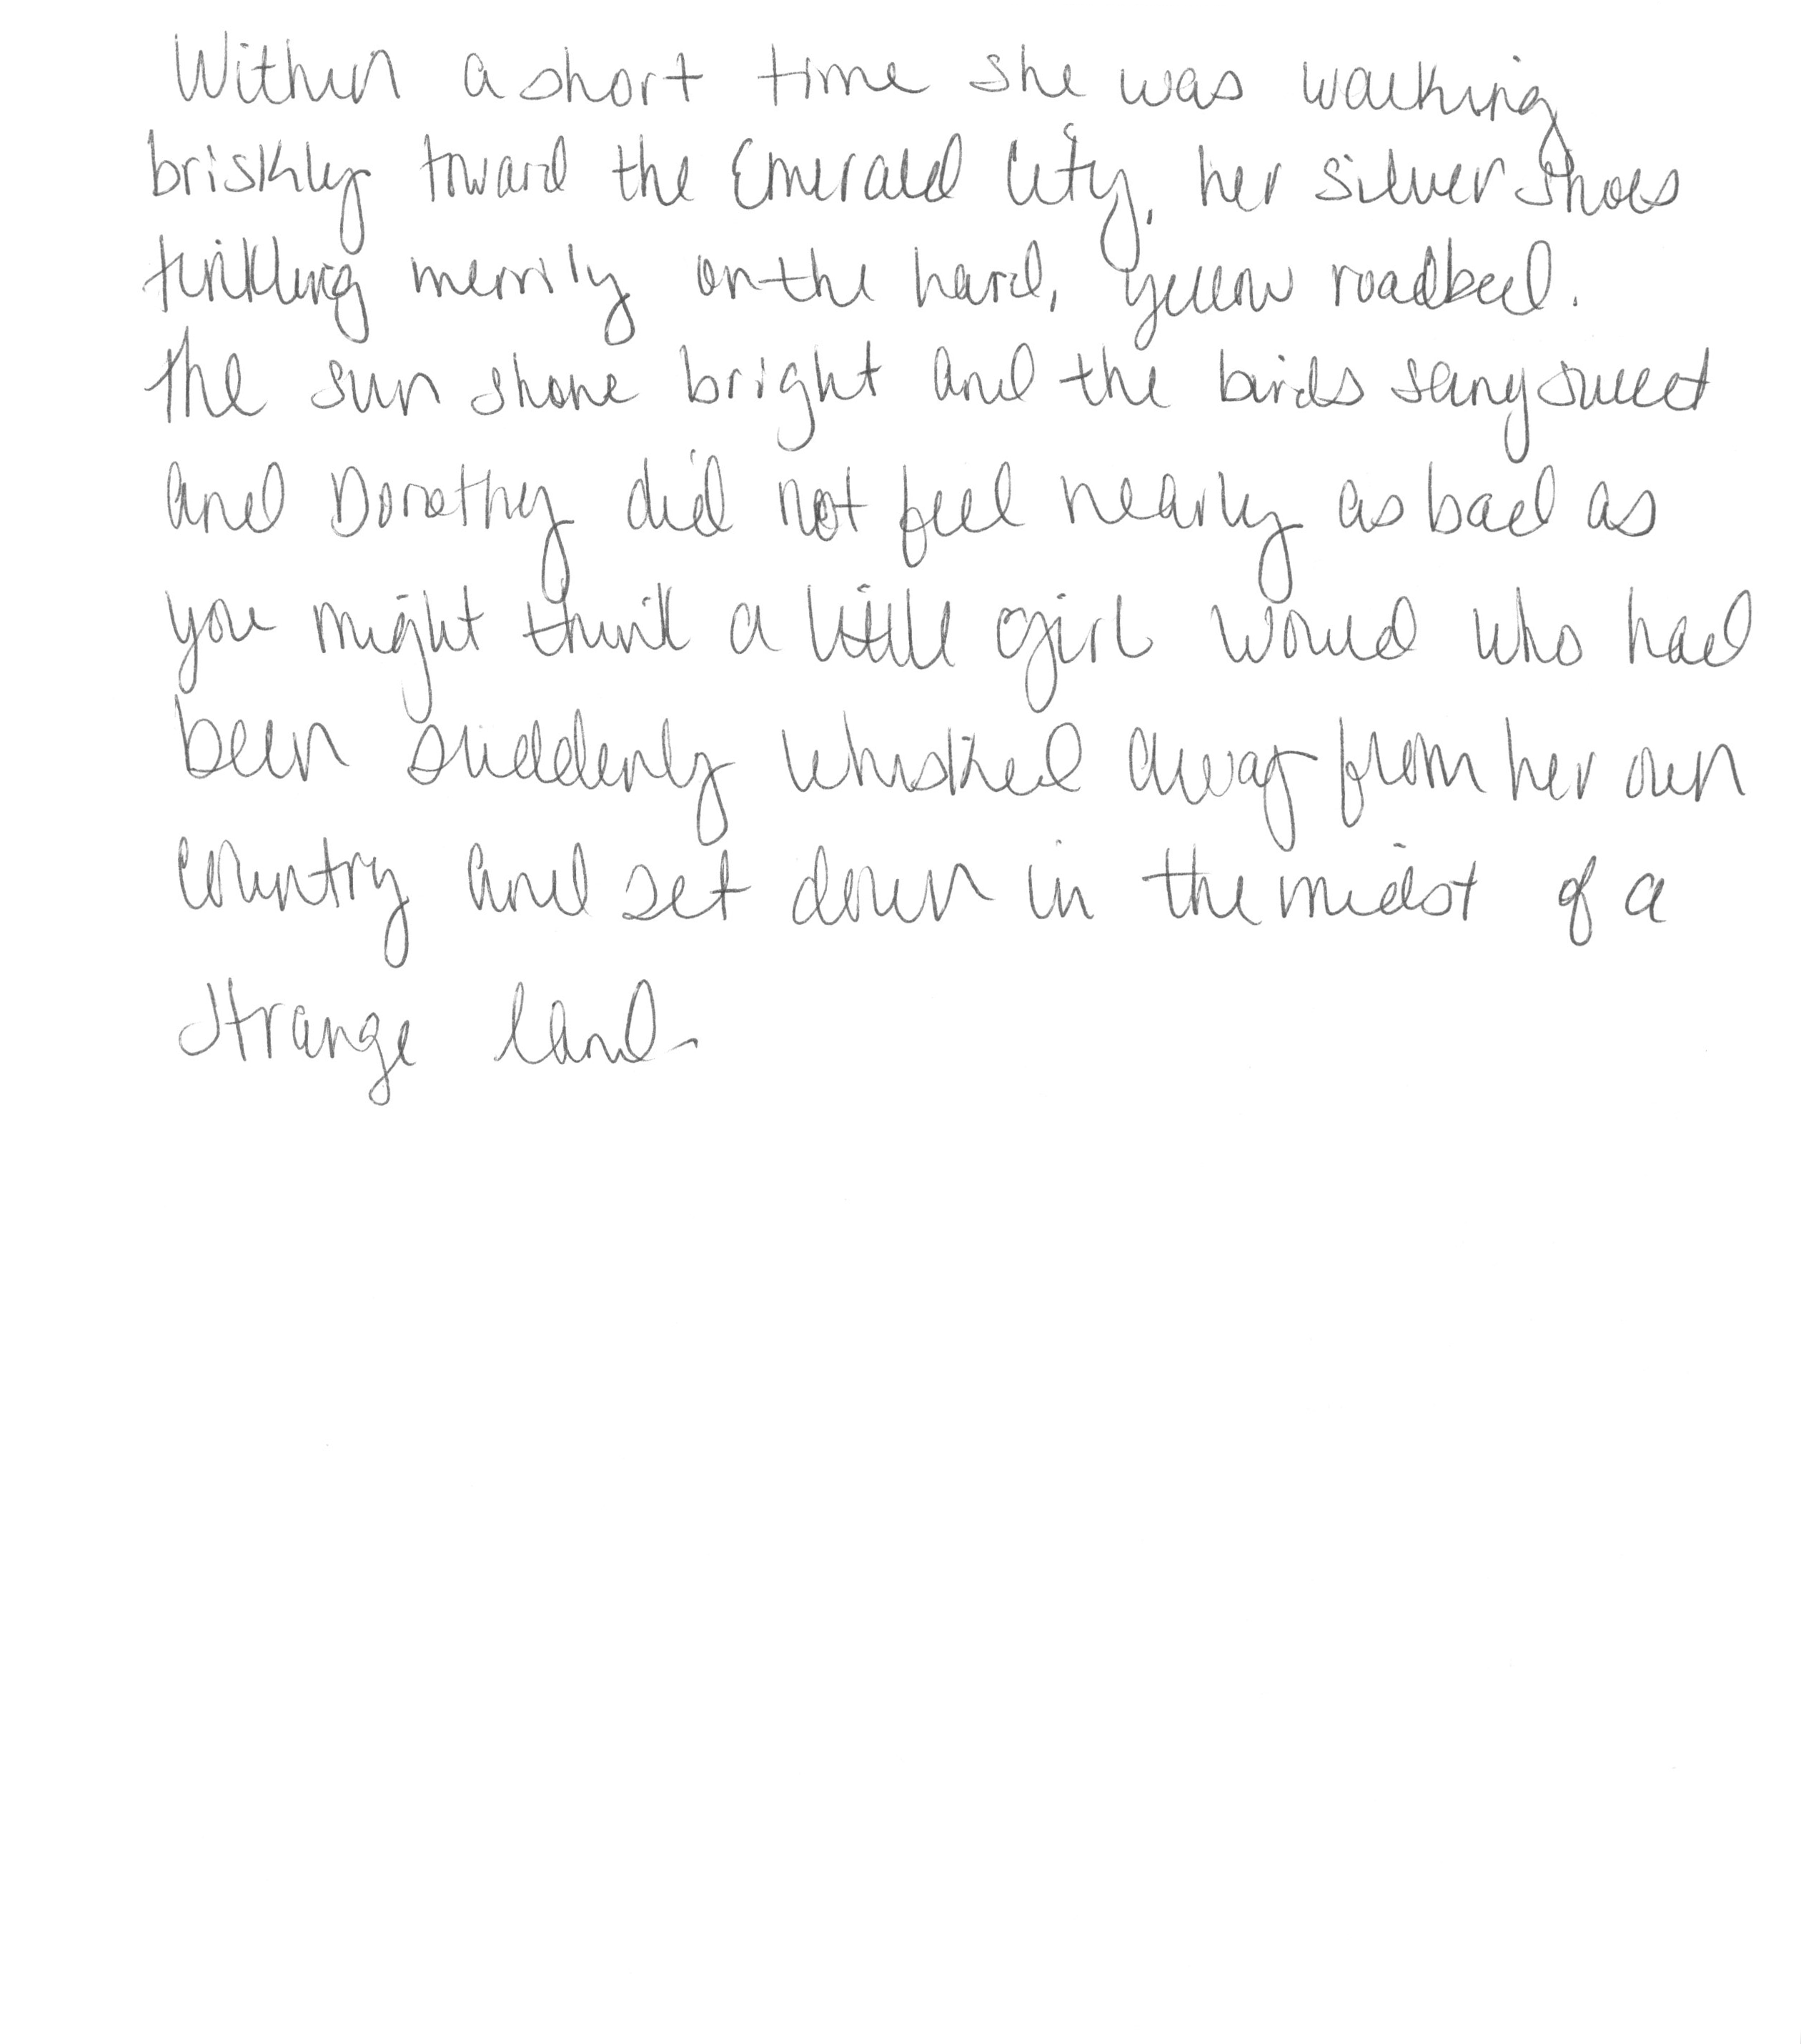 Within a short time she was walking
briskly toward the Emerald City, her silver shoes
tinkling merrily on the hard, yellow roadbed.
The sun shone bright and the birds sang sweet
and Dorothy did not feel nearly as bad as
you might think a little girl would who had
been suddenly whisked away from her own
country and set down in the midst of a
strange land.